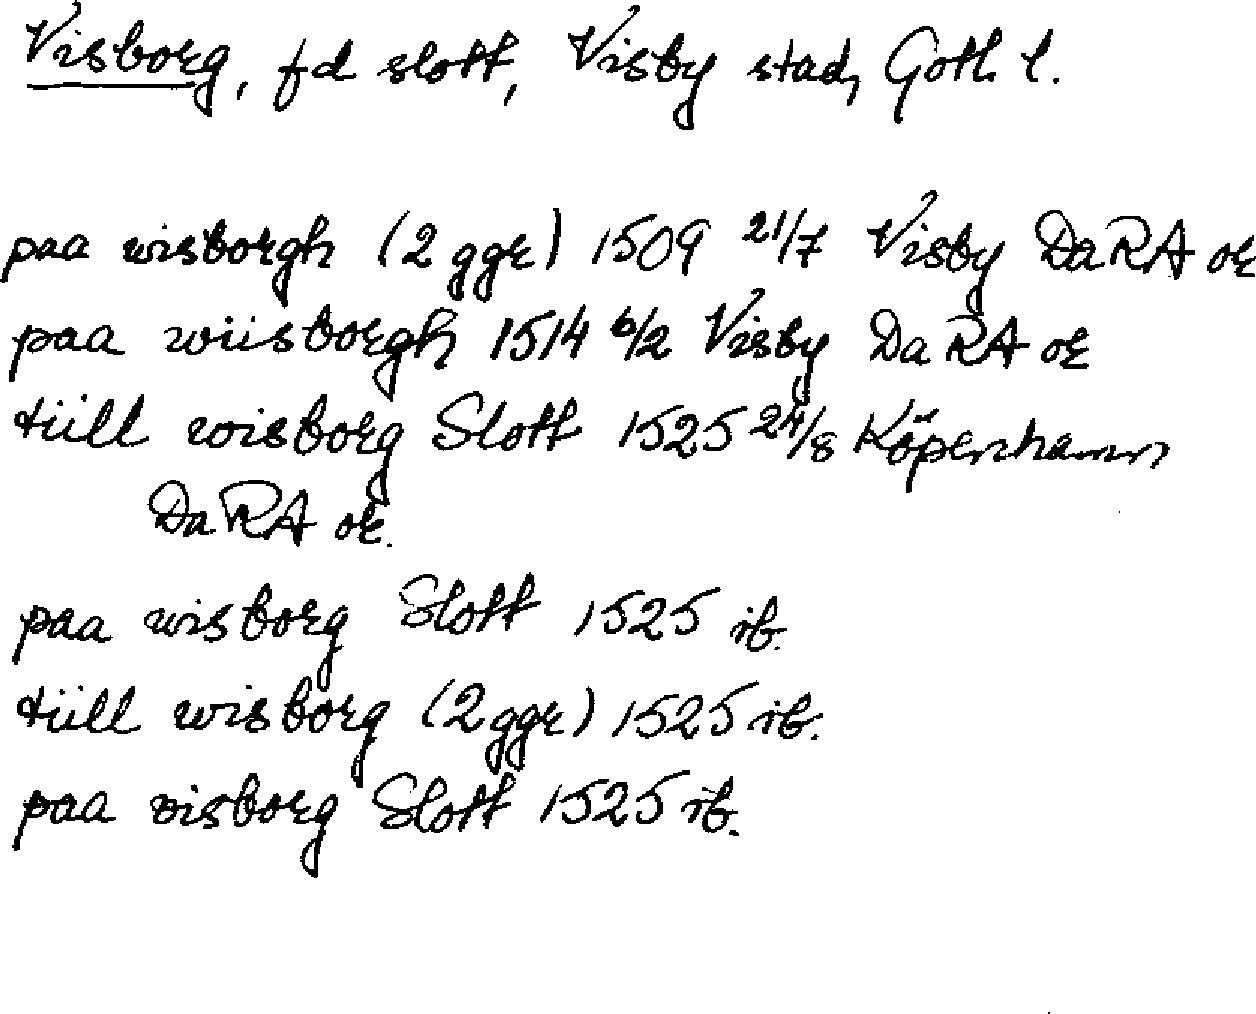 Visborg, fd slott, Visby stad, Gotl. l.
paa wisborgh (2 ggr) 1509 21/7 Visby DaRA or
paa wiisborgh 1514 6/2 Visby DaRA or
tiill wisborg Slott 1525 24/8 Köpenhamn
DaRA or.
paa wisborg Slott 1525 ib.
tiill wisborg (2 ggr) 1525 ib.
paa visborg Slott 1525 ib.